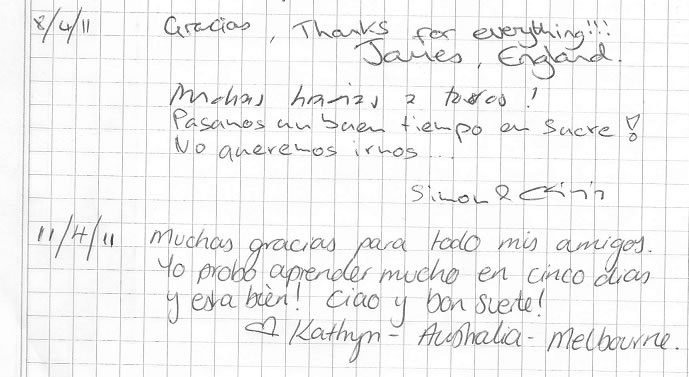 8/4/11 Gracias, Thanks for everything!!!
James, England.
Muchas gracias a todos!
Pasamos un buen tiempo en Sucre!
No queremos irnos...
Simon &
11/4/11 Muchas gracias para todo mis amigos.
Yo probó aprender mucho en cinco dias
y esta bièn! Ciao y bon suerte!
♡ Kathryn - Australia - Melbourne.